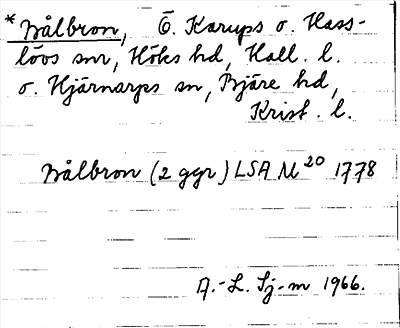 *Bålbron, Ö. Karups o. Hass-
lövs snr, Höks hd, Hall. l.
o. Hjärnarps sn, Bjäre hd,
Krist. l.
Bålbron (2 ggr) LSA M20 1778
A.-L. Sj-m 1966.